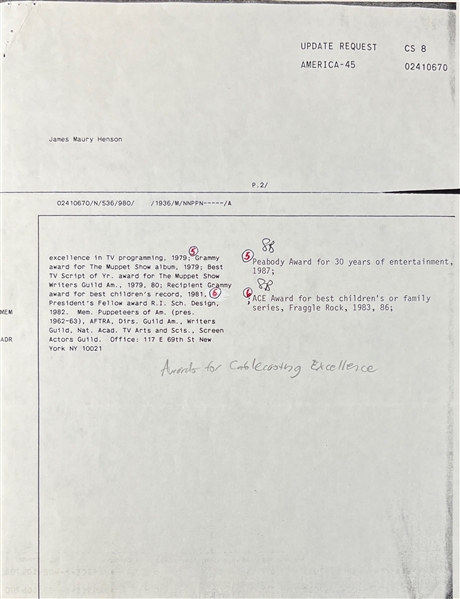 UPDATE REQUEST CS B
AMERICA-45 02410670
James Maury Henson
P.2/
02410670/N/536/980/ /1936/M/NNPPN-----/A
excellence in TV programming, 1979; ⑤ Grammy
award for The Muppet Show album, 1979; Best
TV Script of Yr. award for The Muppet Show
Writers Guild Am., 1979, 80; Recipient Grammy
award for best children's record, 1981, ⑥
President's Fellow award R.I. Sch. Design,
1982. Mem. Puppeteers of Am. (pres.
1962-63), AFTRA, Dirs. Guild Am., Writers
Guild, Nat. Acad. TV Arts and Scis., Screen
Actors Guild. Office: 117 E 69th St New
York NY 10021
MEM
ADR
88
⑤ Peabody Award for 30 years of entertainment,
1987;
88
⑥ ACE Award for best children's or family
series, Fraggle Rock, 1983, 86;
Awards for Cablecasting Excellence